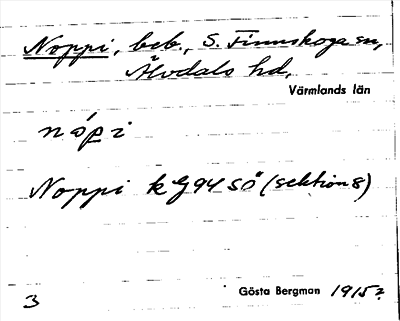 Noppi, beb., S. Finnskoga sn,
Älvdals hd,
Värmlands län
nópi
Noppi kG94 SÖ (sektion 8)
Gösta Bergman 1915?
3